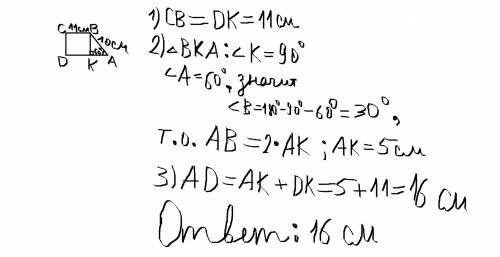 C 11см B
10см
60°
D K A
1) CB = DK = 11 см
2) ∠BKA : ∠K = 90°
∠A = 60°, значит
∠B = 180° - 90° - 60° = 30°,
т.о. AB = 2·AK ; AK = 5 см
3) AD = AK + DK = 5 + 11 = 16 см
Ответ: 16 см